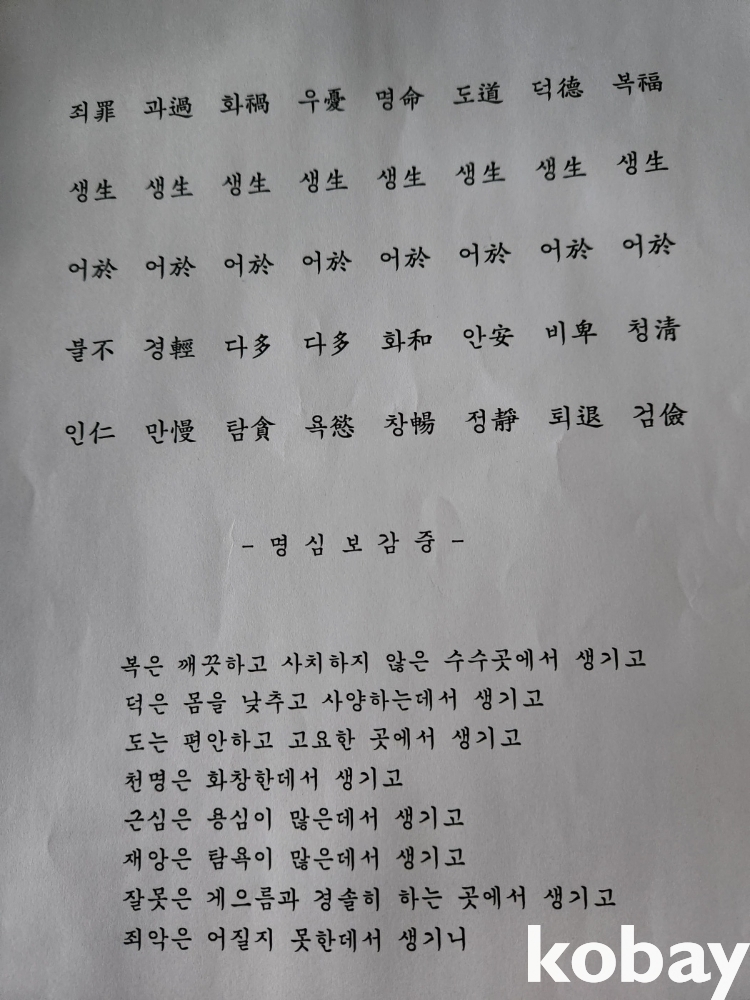 죄罪 과過 화禍 우憂 명命 도道 덕德 복福
생生 생生 생生 생生 생生 생生 생生 생生
어於 어於 어於 어於 어於 어於 어於 어於
불不 경輕 다多 다多 화和 안安 비卑 청淸
인仁 만慢 탐貪 욕慾 창暢 정靜 퇴退 검儉
- 명 심 보 감 중 -
복은 깨끗하고 사치하지 않은 수수곳에서 생기고
덕은 몸을 낮추고 사양하는데서 생기고
도는 편안하고 고요한 곳에서 생기고
천명은 화창한데서 생기고
근심은 용심이 많은데서 생기고
재앙은 탐욕이 많은데서 생기고
잘못은 게으름과 경솔히 하는 곳에서 생기고
죄악은 어질지 못한데서 생기니
kobay